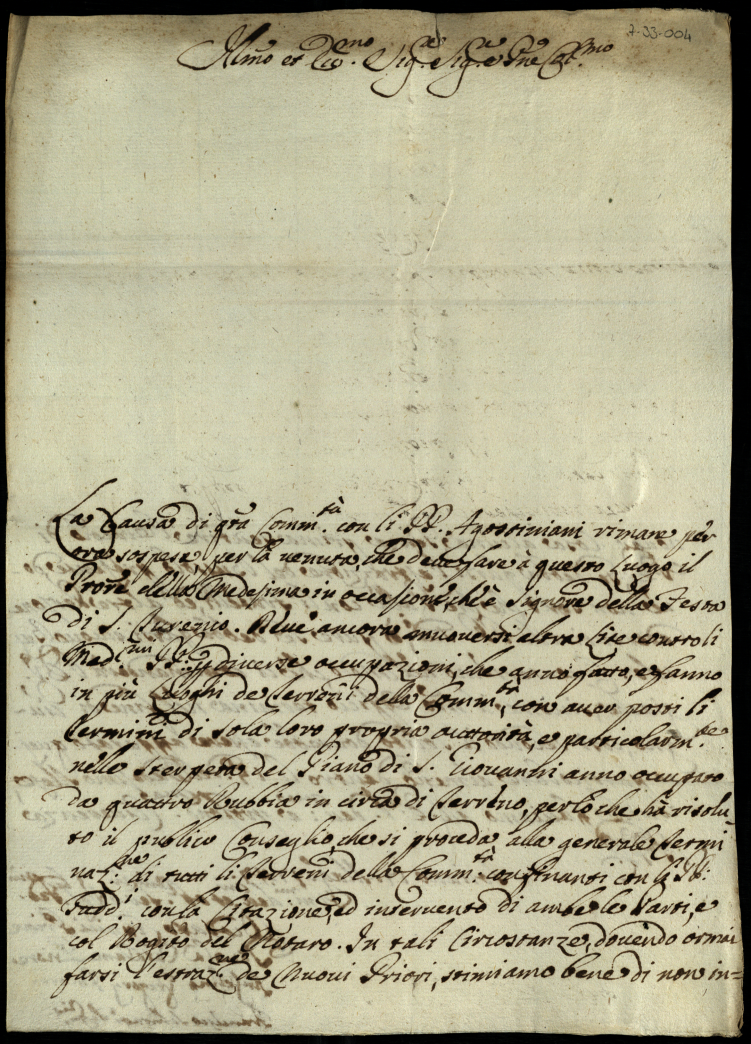 7-33-004
Illmo et Ecc.mo Sig.re Sig.re e Pne Col.mo
La Causa di qta Comm.tà con li PP. Agostiniani rimane per
ora sospesa per la venuta, che deve fare à questo Luogo il
Prore della Medesima in occasione, ch'è Signore della Festa
di S. Deve ancora muoversi altra Lite contro li
Med.mi PP. per diverse occupazioni, che anno fatto, e fanno
in più Luoghi de Terreni della Comm.tà, con aver posti li
Termini di sola loro propria auttorità, e particolarm.te
nelle Sterpeta del Piano di S. Giovanni anno occupato
da quattro Rubbia in circa di Terreno, perlòche hà risolu-
to il publico Conseglio, che si proceda alla generale Termi
naz.ne di tutti li Terreni della Comm.tà confinanti con li PP:
Sudd.i con la Citazione, ed intervento di ambe le Parti, e
col Rogito del Notaro. In tali Circostanze, dovendo ormai
farsi l'estraz.ne de Nuovi Priori, stimiamo bene di non in=